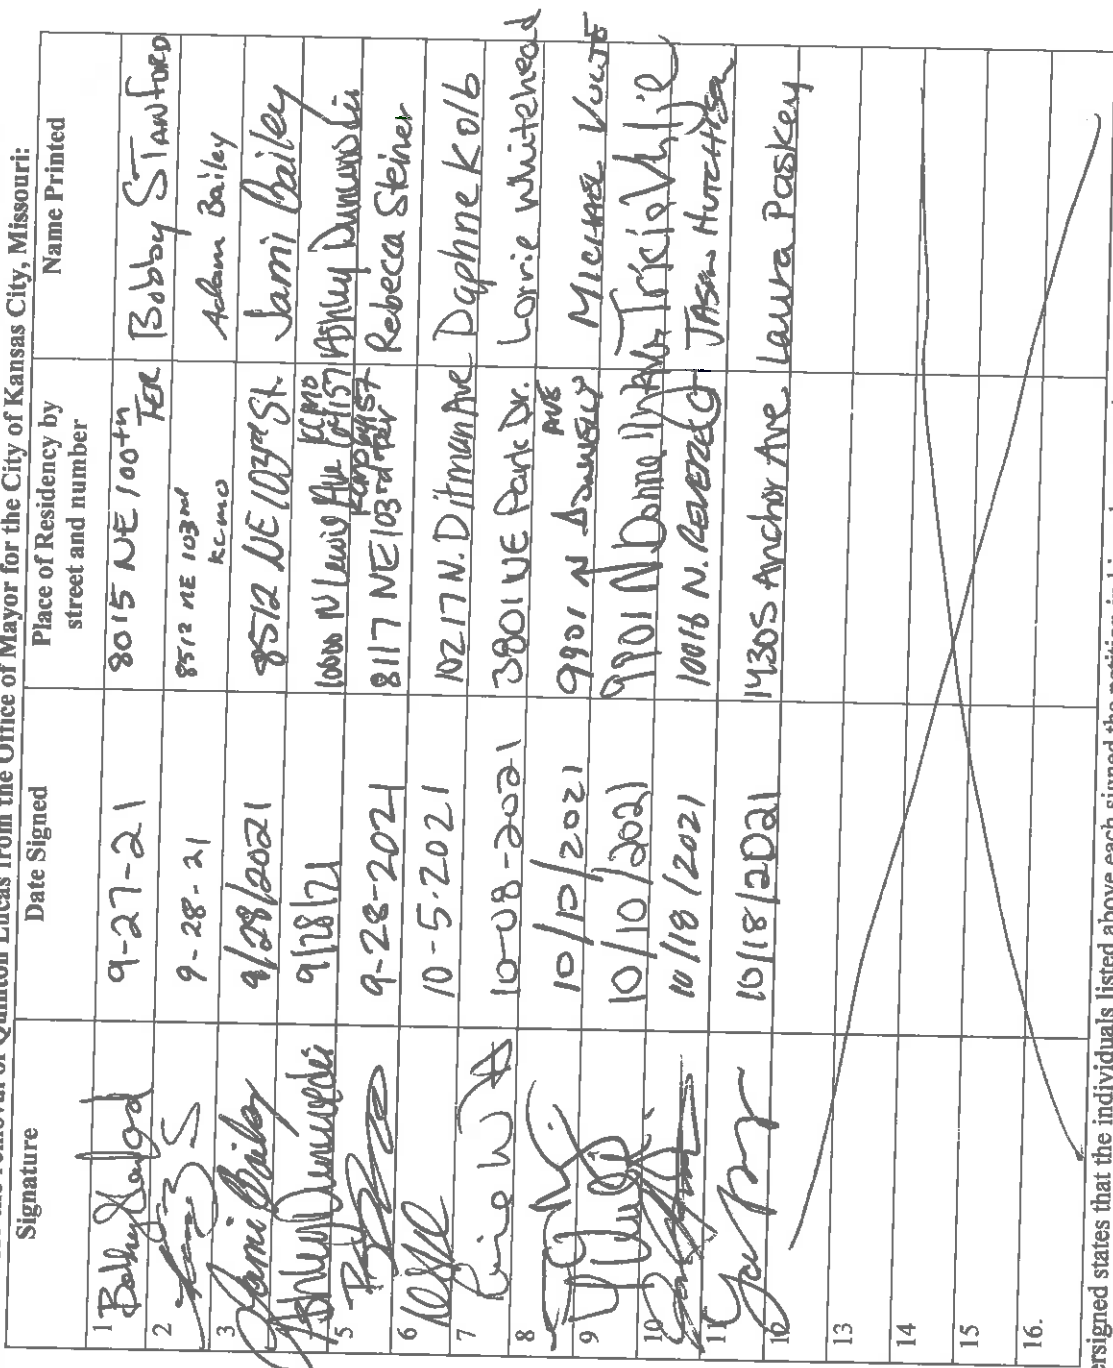 the removal of Quinton Lucas from the Office of Mayor for the City of Kansas City, Missouri:
Signature Date Signed Place of Residency by street and number Name Printed
1 9-27-21 8015 NE 100th TER Bobby STANFORD
2 9-28-21 8512 NE 103rd KCMO Adam Bailey
3 Jami Bailey 9/28/2021 8512 NE 103rd St. Jami Bailey
9/28/21 10000 N Lewis Ave 64157 KCMO Ashley
5 9-28-2021 8117 NE 103rd Ter KCMO 64157 Rebecca Steiner
6 10-5-2021 10217 N. Ditman Ave Daphne Kolb
7 10-08-2021 3801 NE Park Dr. Lorrie Whitehead
8 10/10/2021 9901 N AVE MICHAEL
9 10/10/2021 9901 N Tricia
10 10/18/2021 10016 N. REVERE CT JASON HUTCHISON
11 10/18/2021 14305 Anchor Ave. Laura Paskey
12
13
14
15
16.
ersigned states that the individuals listed above each signed the petition in